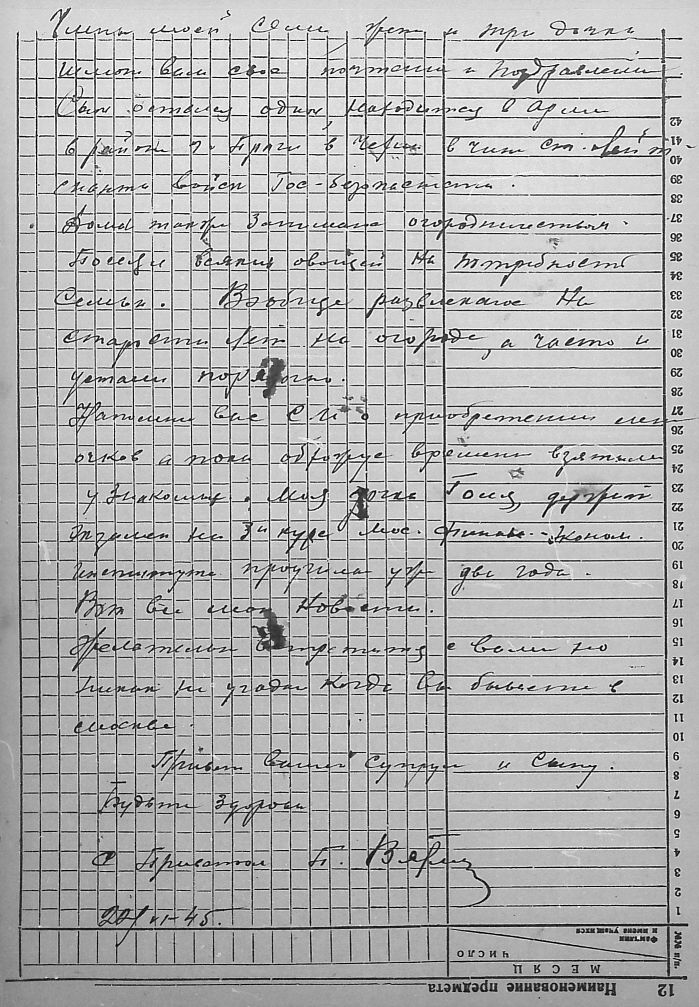 Члены моей семьи жена и три дочки
шлют вам свое почтение и поздравления.
Сын остался один находится в Армии
в районе г. Праги в Чехии в чине ст. лейте-
нанта войск Гос-безопасности.
Дома также занимаюсь огородничеством.
Посеяли всяких овощей на потребность
Семьи. Вообще развлекаюсь на
старости лет на огороде, а часто и
устаем порядочно.
Напомню вас о приобретении мне
очков а пока обхожусь временно взятыми
у знакомых. Моя дочка Тося, держит
экзамен на 3й курс Мос. Финанс.-Эконом.
института проучилась уже два года.
Вот все мои Новости.
Желательно встретиться с вами но
никак не угадаю когда вы бываете в
Москве.
Привет вашей супруге и сыну.
Будьте здоровы
С Приветом П.
20/VI-45.
12 Наименование предмета
МЕСЯЦ
ЧИСЛО
Фамилия и имена учащихся
№№ п/п.
1
2
3
4
5
6
7
8
9
10
11
12
13
14
15
16
17
18
19
20
21
22
23
24
25
26
27
28
29
30
31
32
33
34
35
36
37
38
39
40
41
42